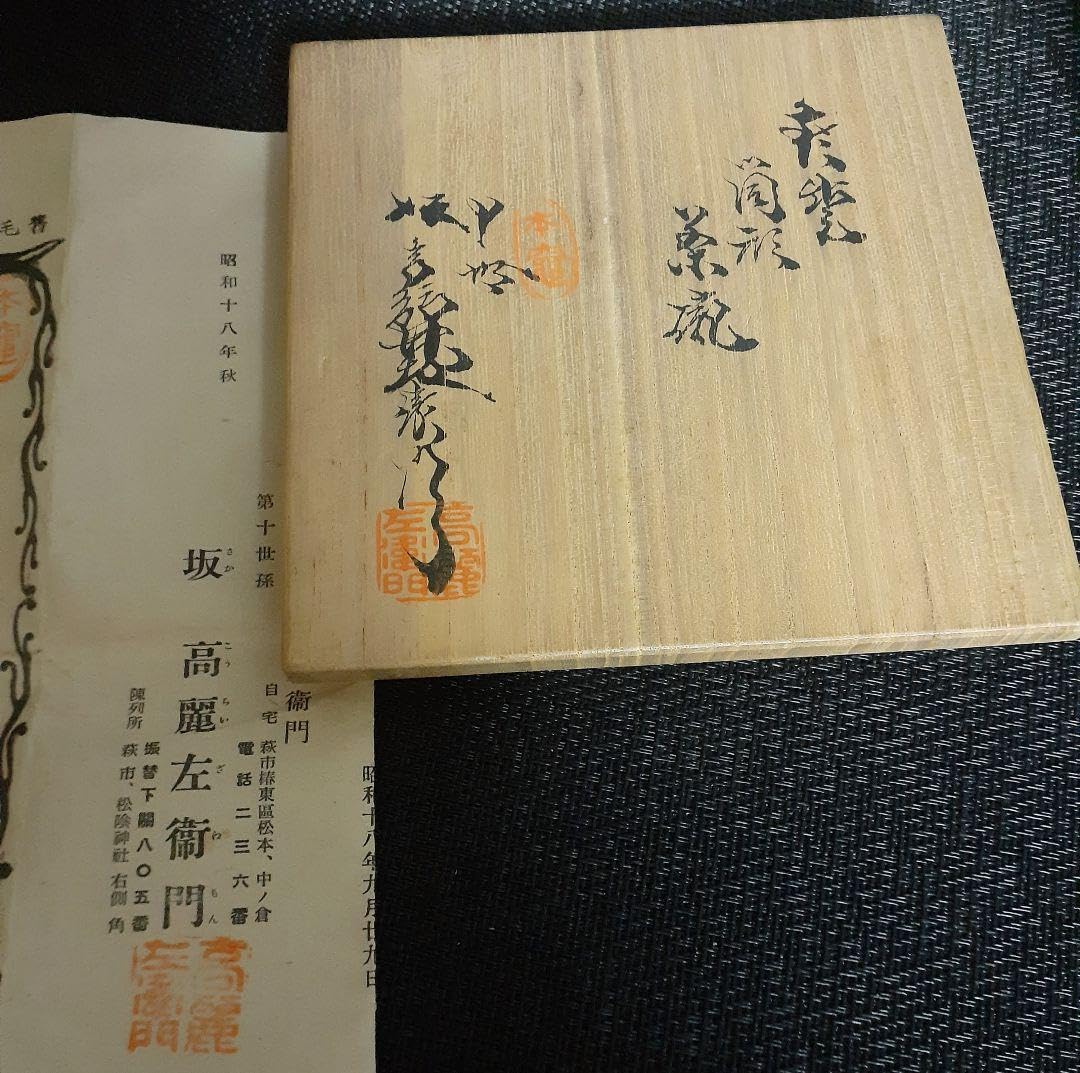 萩焼
筒形
茶碗
坂高麗左衛門
高麗左衛門
衛門
昭和十八年九月廿九日
自宅 萩市椿東區松本、中ノ倉
電話二三六番
第十世孫
坂高麗左衛門
さか こうらいざゑもん
振替下關八〇五番
陳列所 萩市、松陰神社右側角
昭和十八年秋
高麗左衛門
舊毛